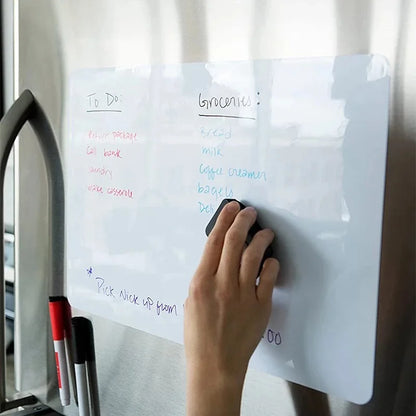 To Do:
Return package
Call bank
Laundry
make casserole
Groceries:
Bread
milk
Coffee creamer
bagels
* Pick Nick up from
:00